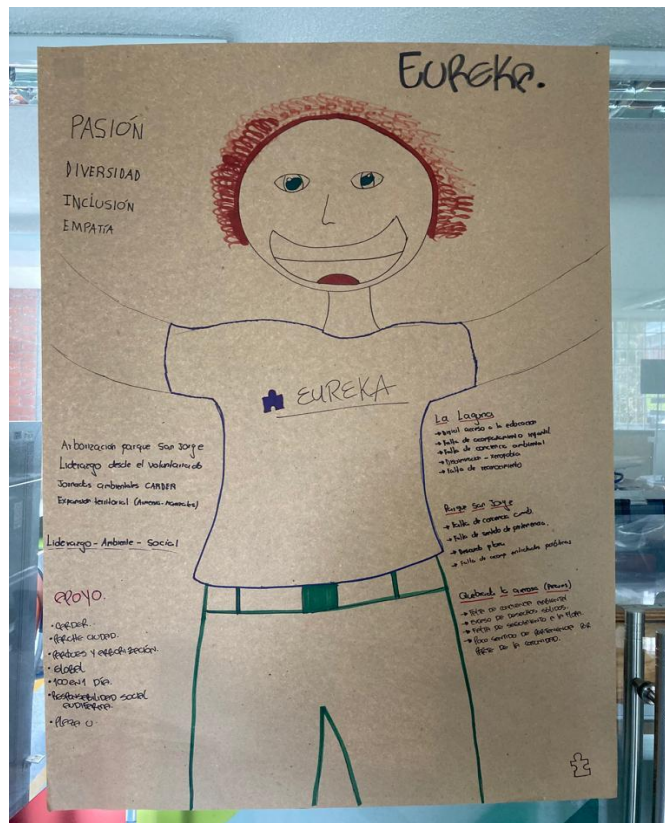 EUREKA.
PASIÓN
DIVERSIDAD
INCLUSIÓN
EMPATÍA
EUREKA
Arborización parque San Jorge
Liderazgo desde el voluntariado
Jornadas ambientales CARDER
Expansión territorial (Armenia-Manizales)
Liderazgo - Ambiente - Social
APOYO.
• CARDER.
• PARCHE CIUDAD.
• PARQUES Y ARBORIZACIÓN.
• GLOBAL
• 100 EN 1 DÍA.
• RESPONSABILIDAD SOCIAL
AUDIFARMA.
• PLAZA U.
La Laguna
→ acceso a la educación
→ Falta de acompañamiento infantil
→ Falta de conciencia ambiental
→ Discriminación - xenofobia
→ Falta de reconocimiento
Parque San Jorge
→ Falta de conciencia amb.
→ Falta de sentido de pertenencia.
→
→ Falta de acomp. entidades públicas
Quebrada la
→ FALTA DE CONCIENCIA AMBIENTAL
→ EXCESO DE DESECHOS SÓLIDOS.
→ FALTA DE SEGUIMIENTO A LA FLORA.
→ POCO SENTIDO DE PERTENENCIA POR
PARTE DE LA COMUNIDAD.